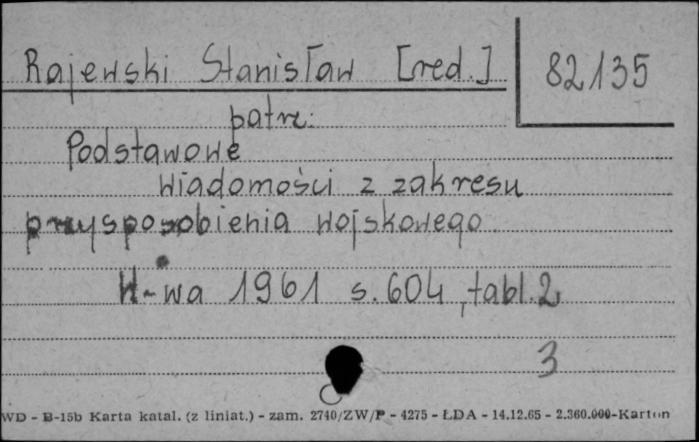 Rajewski Stanisław [red.] 82135
patrz:
Podstawowe
wiadomości z zakresu
przysposobienia wojskowego
W-wa 1961 s. 604, tabl. 2
3
WD - B-15b Karta katal. (z liniat.) - zam. 2740/ZW/P - 4275 - ŁDA - 14.12.65 - 2.360.000-Karton